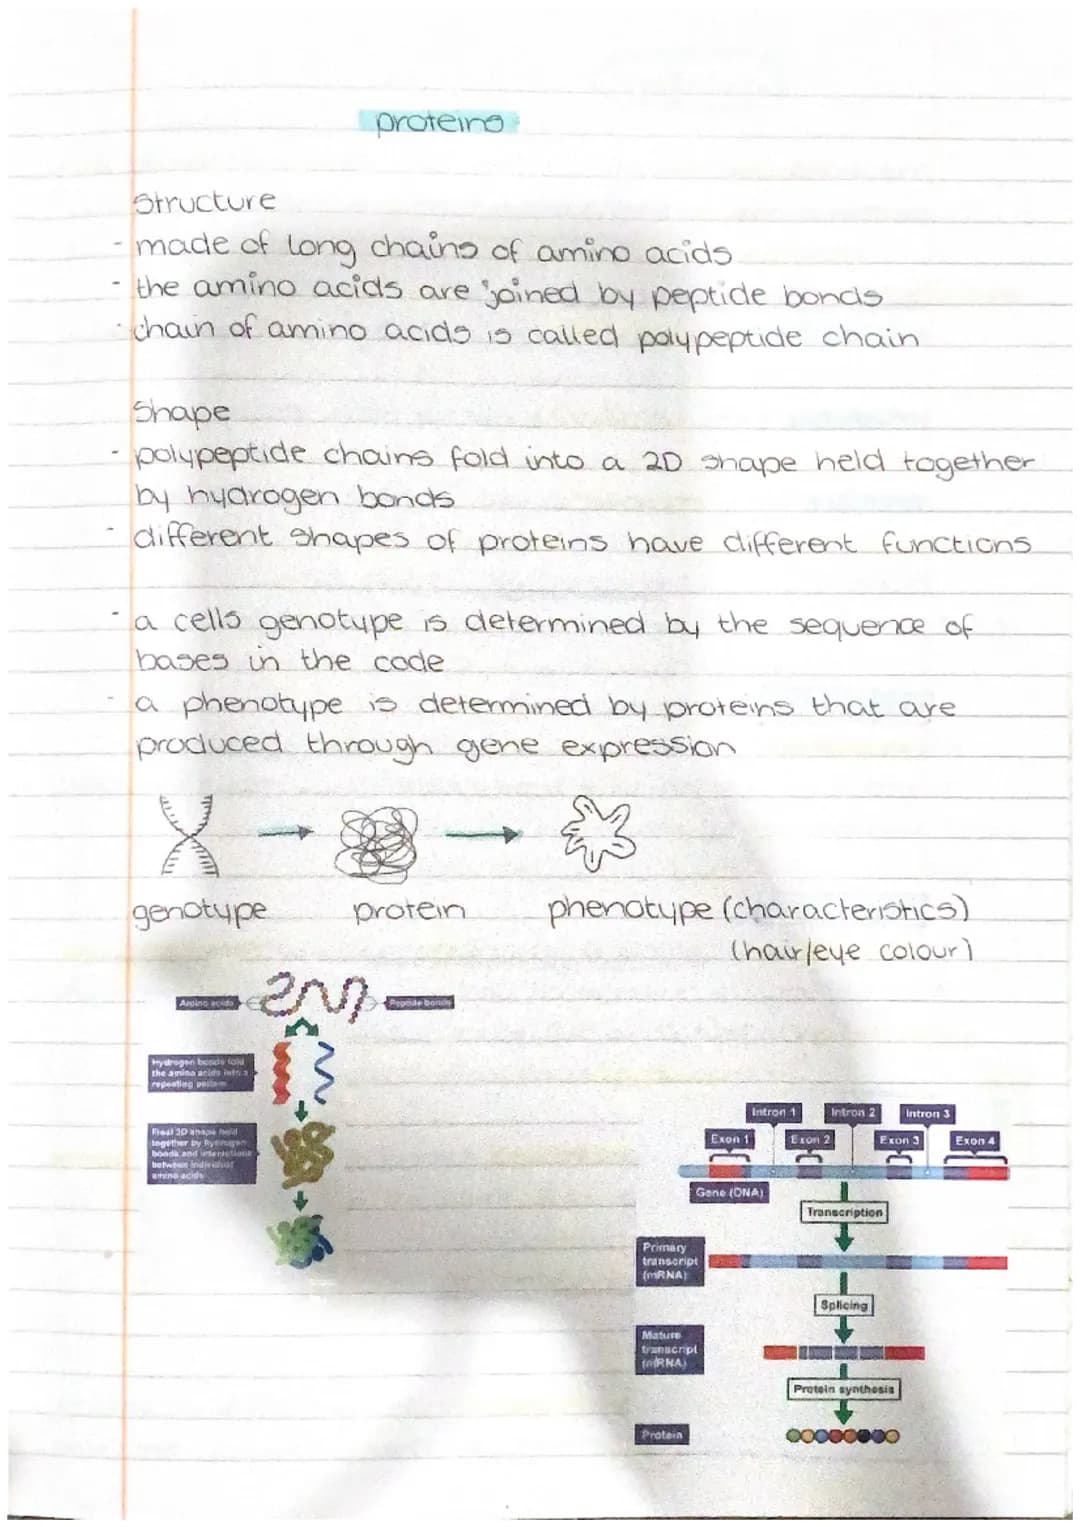 proteins
Structure
- made of long chains of amino acids
- the amino acids are joined by peptide bonds
- chain of amino acids is called polypeptide chain
Shape
- polypeptide chains fold into a 2D shape held together
by hydrogen bonds
- different shapes of proteins have different functions
- a cells genotype is determined by the sequence of
bases in the code
- a phenotype is determined by proteins that are
produced through gene expression
genotype protein phenotype (characteristics)
(hair/eye colour)
Amino acids Peptide bonds
Hydrogen bonds fold
the amino acids into a
repeating pattern
Final 3D shape held
together by hydrogen
bonds and interactions
between individual
amino acids
Intron 1 Intron 2 Intron 3
Exon 1 Exon 2 Exon 3 Exon 4
Gene (DNA)
Transcription
Primary
transcript
(mRNA)
Splicing
Mature
transcript
(mRNA)
Protein synthesis
Protein